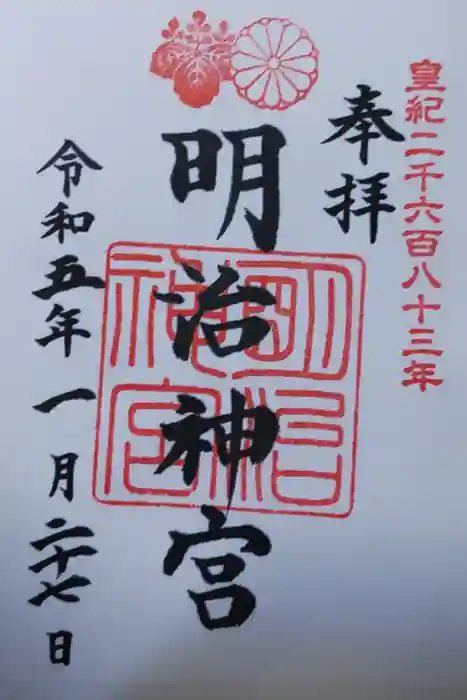 皇紀二千六百八十三年
奉拝
明治神宮
明治神宮
令和五年一月二十七日